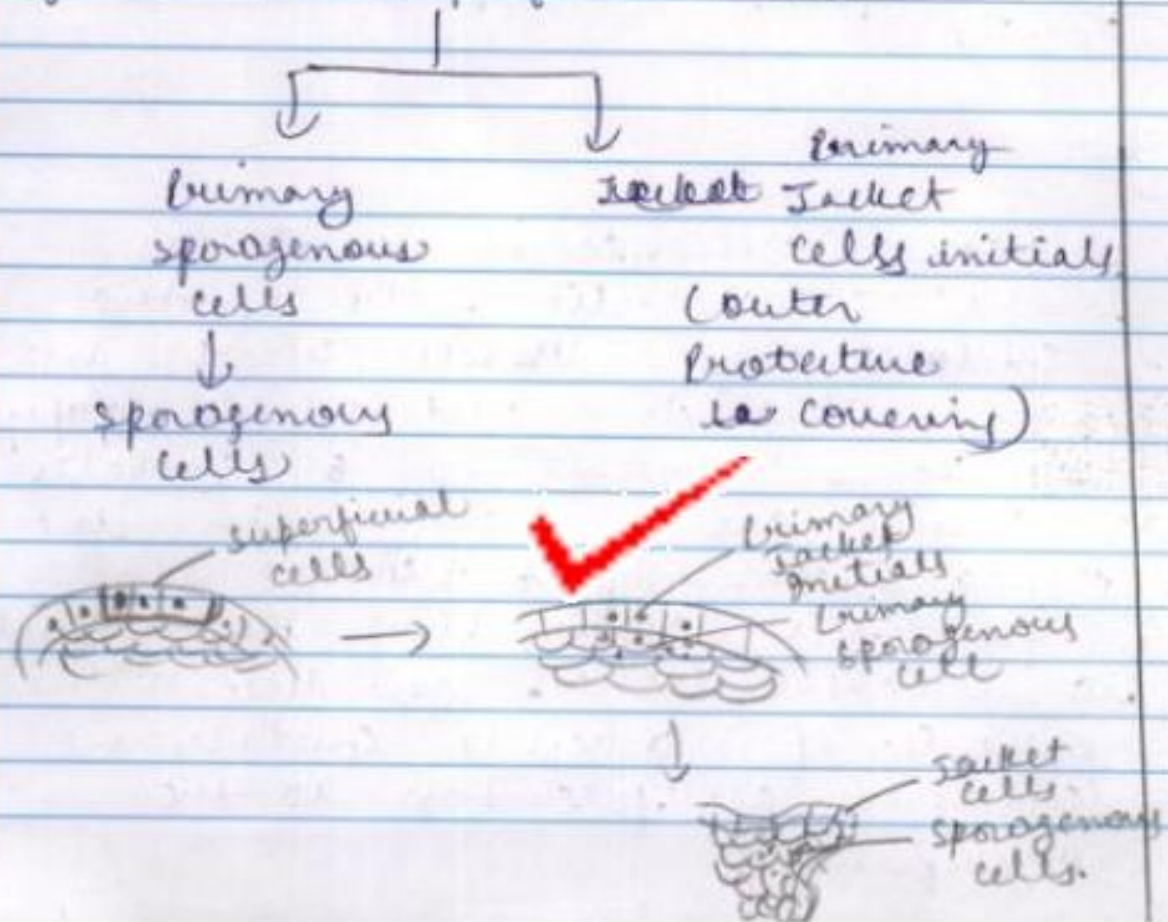 Primary
sporogenous
cells
sporogenous
cells
Primary
Jacket
cells initials
(outer
Protective
covering)
superficial
cells
Primary
Jacket
Initials
Primary
sporogenous
cell
Jacket
cells
sporogenous
cells.